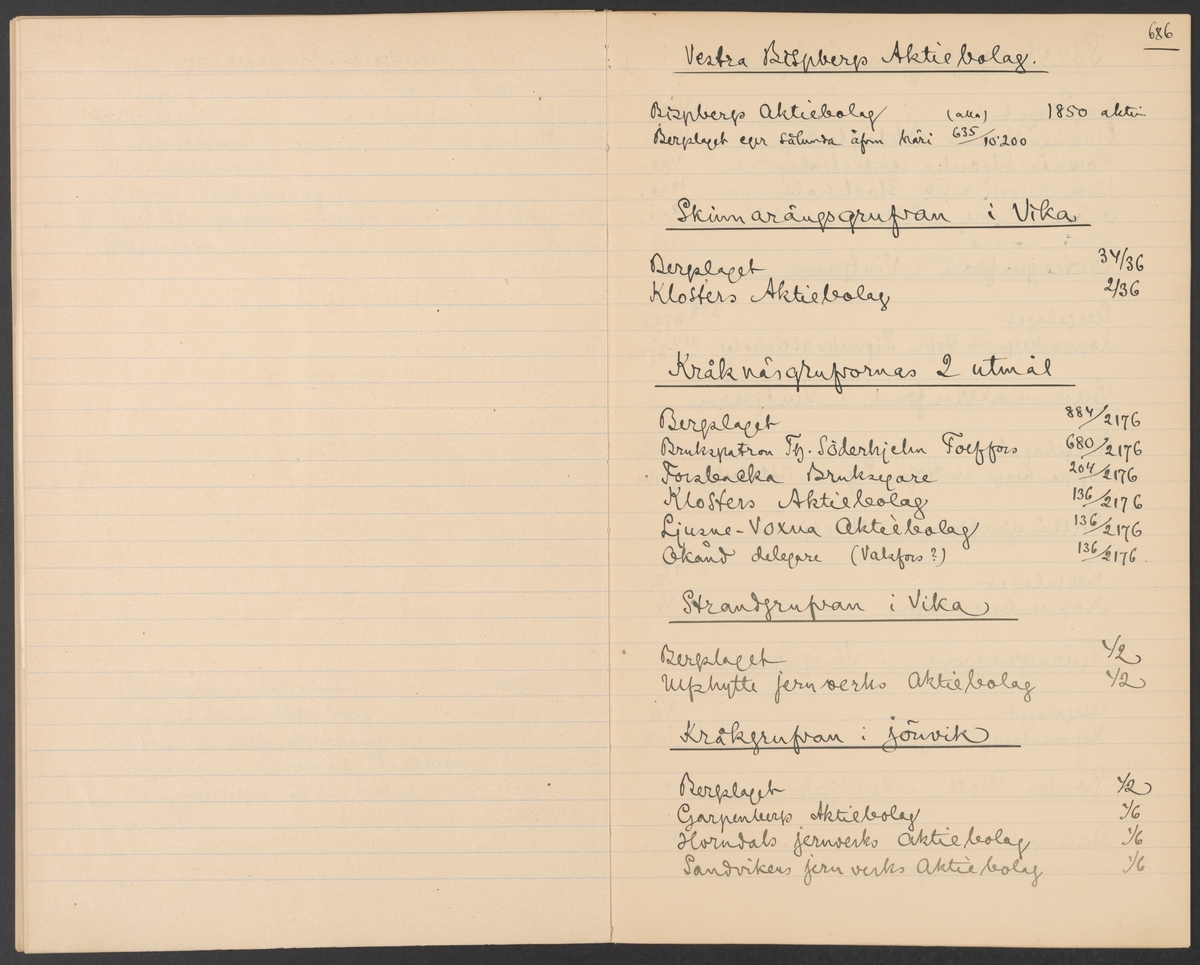 686
Vestra Bispbergs Aktiebolag.
Bispbergs Aktiebolag (alla) 1850 aktier
Bergslaget eger sålunda äfven häri 635/10200
Skinnarängsgrufvan i Vika
Bergslaget 34/36
Klosters Aktiebolag 2/36
Kråknäsgrufvornas 2 utmål
Bergslaget 884/2176
Brukspatron Th. Söderhjelm 680/2176
Forsbacka Bruksegare 204/2176
Klosters Aktiebolag 136/2176
Ljusne-Voxna Aktiebolag 136/2176
Okänd delegare (Valsfors?) 136/2176
Strandgrufvan i Vika
Bergslaget 1/2
Ulfshytte jernverks Aktiebolag 1/2
Kråkgrufvan i jönvik
Bergslaget 1/2
Garpenbergs Aktiebolag 1/6
Horndals jernverks Aktiebolag 1/6
Sandvikens jernverks Aktiebolag 1/6